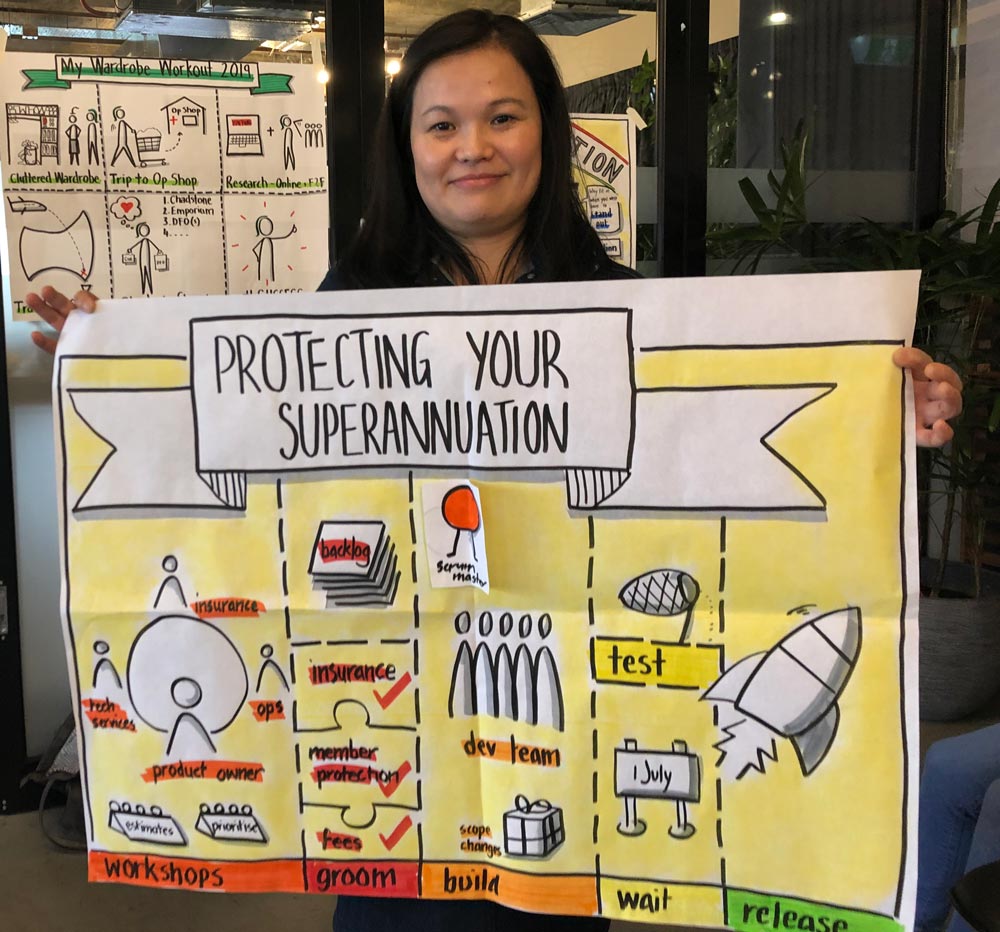 My Wardrobe Workout 2019
Cluttered Wardrobe
Op Shop
Trip to Op Shop
Research - Online + F2F
1. Chadstone
2. Emporium
3. DFO(s)
4. ....
PROTECTING YOUR
SUPERANNUATION
insurance
tech
services
ops
product owner
estimates
prioritise
workshops
backlog
insurance
member
protection
fees
groom
scrum
master
dev team
scope
changes
build
test
1 July
wait
release